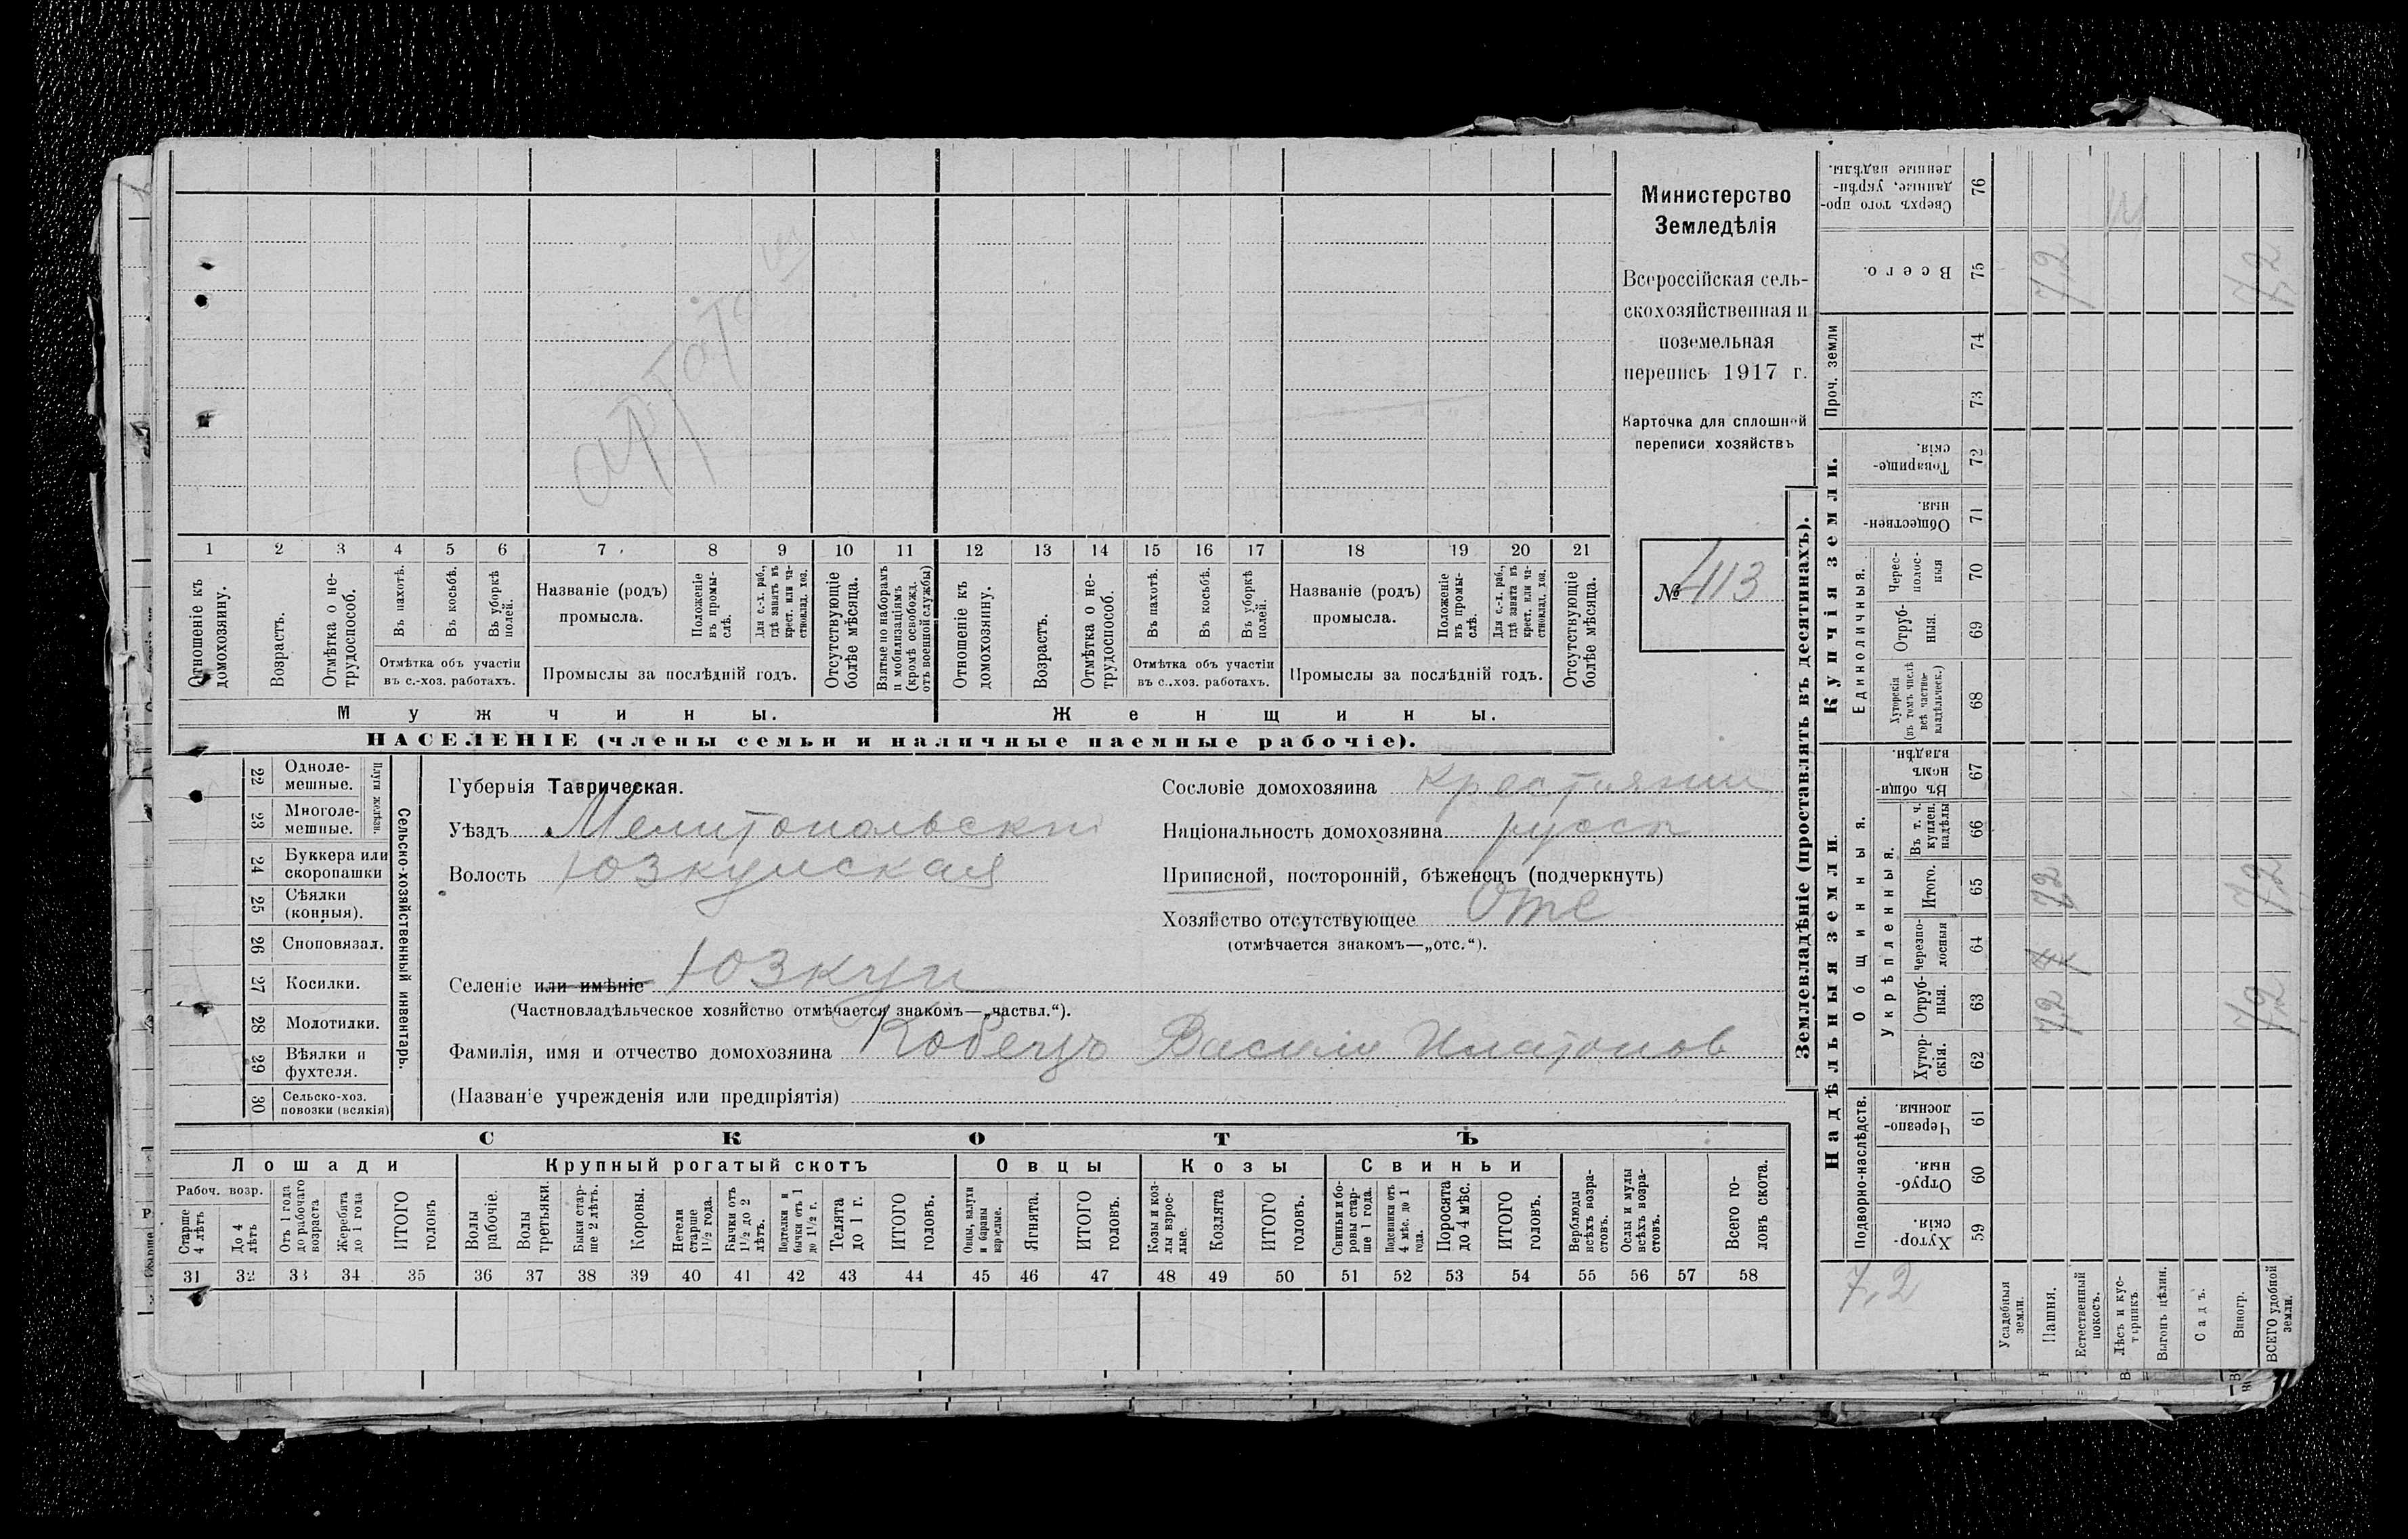 Министерство
Земледѣлія
Всероссійская сель-
скохозяйственная и
поземельная
перепись 1917 г.
Карточка для сплошной
переписи хозяйствъ
№ 413
1 2 3 4 5 6 7 8 9 10 11 12 13 14 15 16 17 18 19 20 21
Отношеніе къ домохозяину.
Возрастъ.
Отмѣтка о не-трудоспособ.
Въ пахотѣ.
Въ косьбѣ.
Въ уборкѣ полей.
Отмѣтка объ участіи
въ с.-хоз. работахъ.
Названіе (родъ)
промысла.
Положеніе въ промы-слѣ.
Для с.-х. раб., гдѣ занятъ въ крест. или ча-стновлад. хоз.
Промыслы за послѣдній годъ.
Отсутствующіе болѣе мѣсяца.
Взятые по наборамъ и мобилизаціямъ (кромѣ освобожд. отъ военной службы)
Отношеніе къ домохозяину.
Возрастъ.
Отмѣтка о не-трудоспособ.
Въ пахотѣ.
Въ косьбѣ.
Въ уборкѣ полей.
Отмѣтка объ участіи
въ с..хоз. работахъ.
Названіе (родъ)
промысла.
Положеніе въ промы-слѣ.
Для с.-х. раб., гдѣ занята въ крест. или ча-стновлад. хоз.
Промыслы за послѣдній годъ.
Отсутствующіе болѣе мѣсяца.
Мужчины.
Женщины.
НАСЕЛЕНІЕ (члены семьи и наличные наемные рабочіе).
22 Одноле-мешные.
23 Многоле-мешные.
Плуги желѣзн.
24 Буккера или скоропашки
25 Сѣялки (конныя).
26 Сноповязал.
27 Косилки.
28 Молотилки.
29 Вѣялки и фухтеля.
30 Сельско-хоз. повозки (всякія)
Сельско-хозяйственный инвентарь.
Губернія Таврическая.
Уѣздъ Мелитопольскій
Волость Юзкуйская
Селеніе или имѣніе Юзкуи
(Частновладѣльческое хозяйство отмѣчается знакомъ—„частвл.“).
Фамилія, имя и отчество домохозяина Кобецъ Василій Платонов
(Названіе учрежденія или предпріятія)
Сословіе домохозяина крестьянин
Національность домохозяина русск
Приписной, посторонній, бѣженецъ (подчеркнуть)
Хозяйство отсутствующее Отс
(отмѣчается знакомъ—„отс.“).
СКОТЪ
Лошади
Крупный рогатый скотъ
Овцы
Козы
Свиньи
Рабоч. возр.
Старше 4 лѣтъ
До 4 лѣтъ
Отъ 1 года до рабочаго возраста
Жеребята до 1 года
ИТОГО головъ
Волы рабочіе.
Волы третьяки.
Быки стар-ше 2 лѣтъ.
Коровы.
Нетели старше 1½ года.
Бычки отъ 1½ до 2 лѣтъ.
Подтелки и бычки отъ 1 до 1½ г.
Телята до 1 г.
ИТОГО головъ.
Овцы, валухи и бараны взрослые.
Ягнята.
ИТОГО головъ.
Козы и коз-лы взрос-лые.
Козлята
ИТОГО головъ.
Свиньи и бо-ровы стар-ше 1 года.
Подсвинки отъ 4 мѣс. до 1 года.
Поросята до 4 мѣс.
ИТОГО головъ.
Верблюды всѣхъ возра-стовъ.
Ослы и мулы всѣхъ возра-стовъ.
Всего го-ловъ скота.
31 32 33 34 35 36 37 38 39 40 41 42 43 44 45 46 47 48 49 50 51 52 53 54 55 56 57 58
Землевладѣніе (проставлять въ десятинахъ).
Надѣльныя земли.
Купчія земли.
Проч. земли
Подворно-наслѣдств.
Общинныя.
Укрѣпленныя.
Единоличныя.
Хутор-скія. 59
Отруб-ныя. 60
Черезпо-лосныя. 61
Хутор-скія. 62
Отруб-ныя. 63
Черезпо-лосныя 64
Итого. 65
Въ т. ч. куплен. надѣлы 66
Въ общи-номъ владѣн. 67
Хуторскія (въ томъ числѣ всѣ частно-владѣльческ.) 68
Отруб-ныя. 69
Черес-полос-ныя 70
Обществен-ныя. 71
Товарище-скія. 72
73
74
Всего. 75
Сверхъ того про-данные, укрѣп-ленные надѣлы. 76
7,2
Усадебныя земли.
Пашня. 7,2 7,2 7,2
Естественный покосъ.
Лѣсъ и кус-тарникъ.
Выгонъ цѣлин.
Садъ.
Виногр.
ВСЕГО удобной земли. 7,2 7,2 7,2